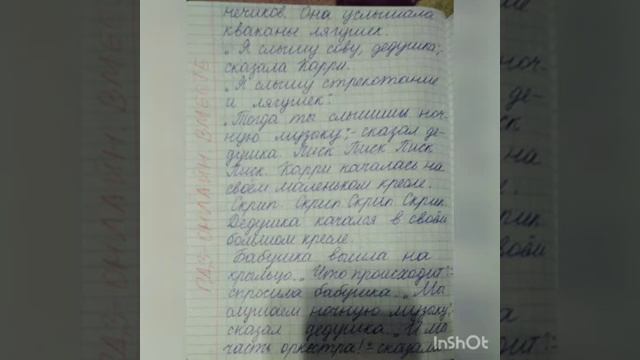 нечиков. Она услышала
кваканы лягушек.
„Я слышу сову, дедушка",-
сказала Карри.
„Я слышу стрекотание
и лягушек".
„Тогда ты слышишь ноч-
ную музыку"- сказал де-
душка. Писк Писк Писк
Писк. Карри качалась на
своём маленьком кресле.
Скрип. Скрип Скрип. Скрип
Дедушка качался в своём
большом кресле.
Бабушка вышла на
крыльцо. „Что происходит"-
спросила бабушка. „Мы
слушаем ночную музыку"
сказал дедушка. И мы
часть оркестра!"- сказала
InShOt